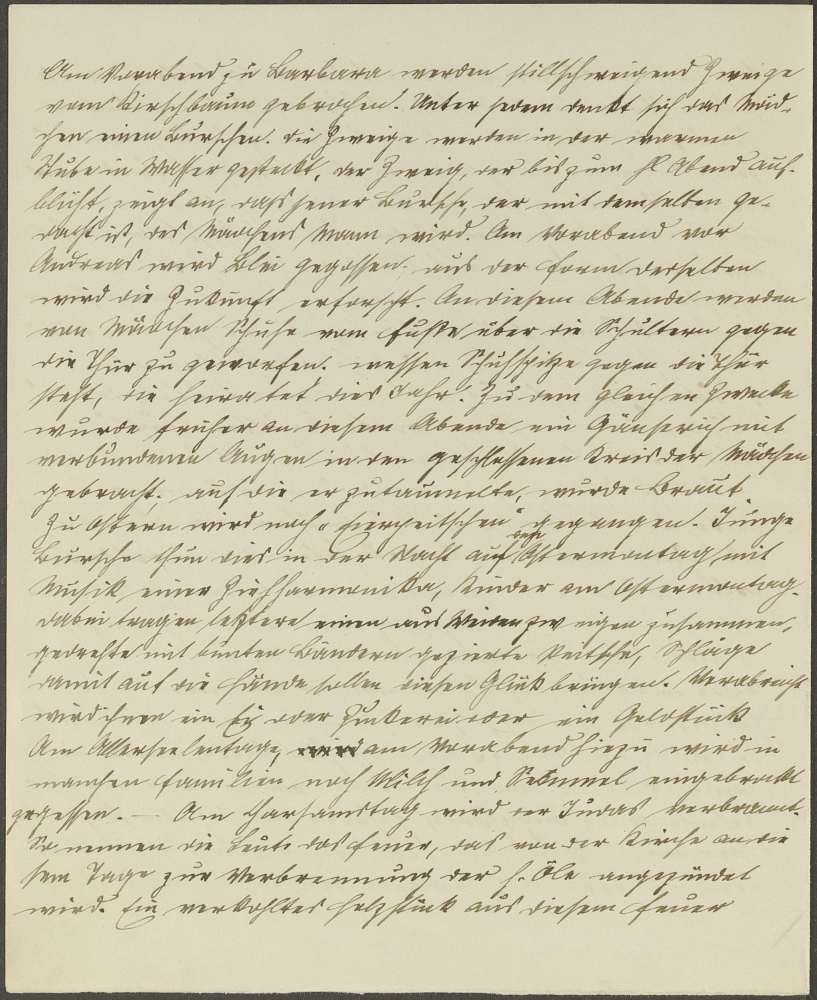 Am Vorabend zu Barbara werden stillschweigend Zweige
vom Kirschbaum gebrochen. Unter jedem denkt sich das Mäd-
chen einen Burschen. Die Zweige werden in der warmen
Stube in Wasser gesteckt, der Zweig, der bis zum hl Abend auf-
blüht, zeigt an, dass jener Bursche, der mit demselben ge-
dacht ist, des Mädchens Mann wird. Am Vorabend vor
Andreas wird Blei gegossen. aus der Form desselben
wird die Zukunft erforscht. An diesem Abende werden
von Mädchen Schuhe vom Fuße über die Schultern gegen
die Thür zu geworfen. wessen Schuhspitze gegen die Thür
steht, die heiratet dies Jahr. Zu dem gleichen Zwecke
wurde früher an diesem Abende ein Gänserich mit
verbundenen Augen in den geschlossenen Kreis der Mädchen
gebracht; auf die er zutaumelte, wurde Braut.
Zu Ostern wird nach "Eierpeitschen" gegangen. Junge
Bursche thun dies in der Nacht auf den Ostermontag mit
Musik einer Ziehharmonika, Kinder am Ostermontag.
dabei tragen letztere einen aus Weidenzweigen zusammen,
gedrehte mit bunten Bändern gezierte Peitsche, Schläge
damit auf die Hände sollen diesen Glück bringen. Verabreicht
wird ihnen ein Ei oder Zuckerei oder ein Geldstück
Am Allerseelentage, wird am Vorabend hiezu wird in
manchen Familien noch Milch und Semmel eingebrockt
gegessen. — Am Charsamstag wird der Judas verbrannt.
So nennen die Leute das Feuer, das von der Kirche an die
sem Tage zur Verbrennung der h. Öle angezündet
wird. Ein verkohltes Holzstück aus diesem Feuer